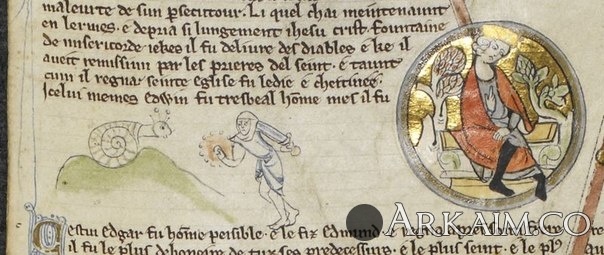 maleurte de sun persecutour. Li quel chai meintenaunt
en lermes. e depria si lungement ihesu crist fountaine
de misericorde ke il fu delivre des diables. e ke il
aveit remissiun par les prieres del seint. e taunt
cum il regna seinte eglise fu ledie e cheitivee.
Icelui memes Edwin fu tresbeal home mes il fu
Cestui Edgar fu home peisible. e le fiz Edmund.
il fu le plus debonere de tuz ses predecessurs. e le plus seint. e le plus
ARKAIM.CO